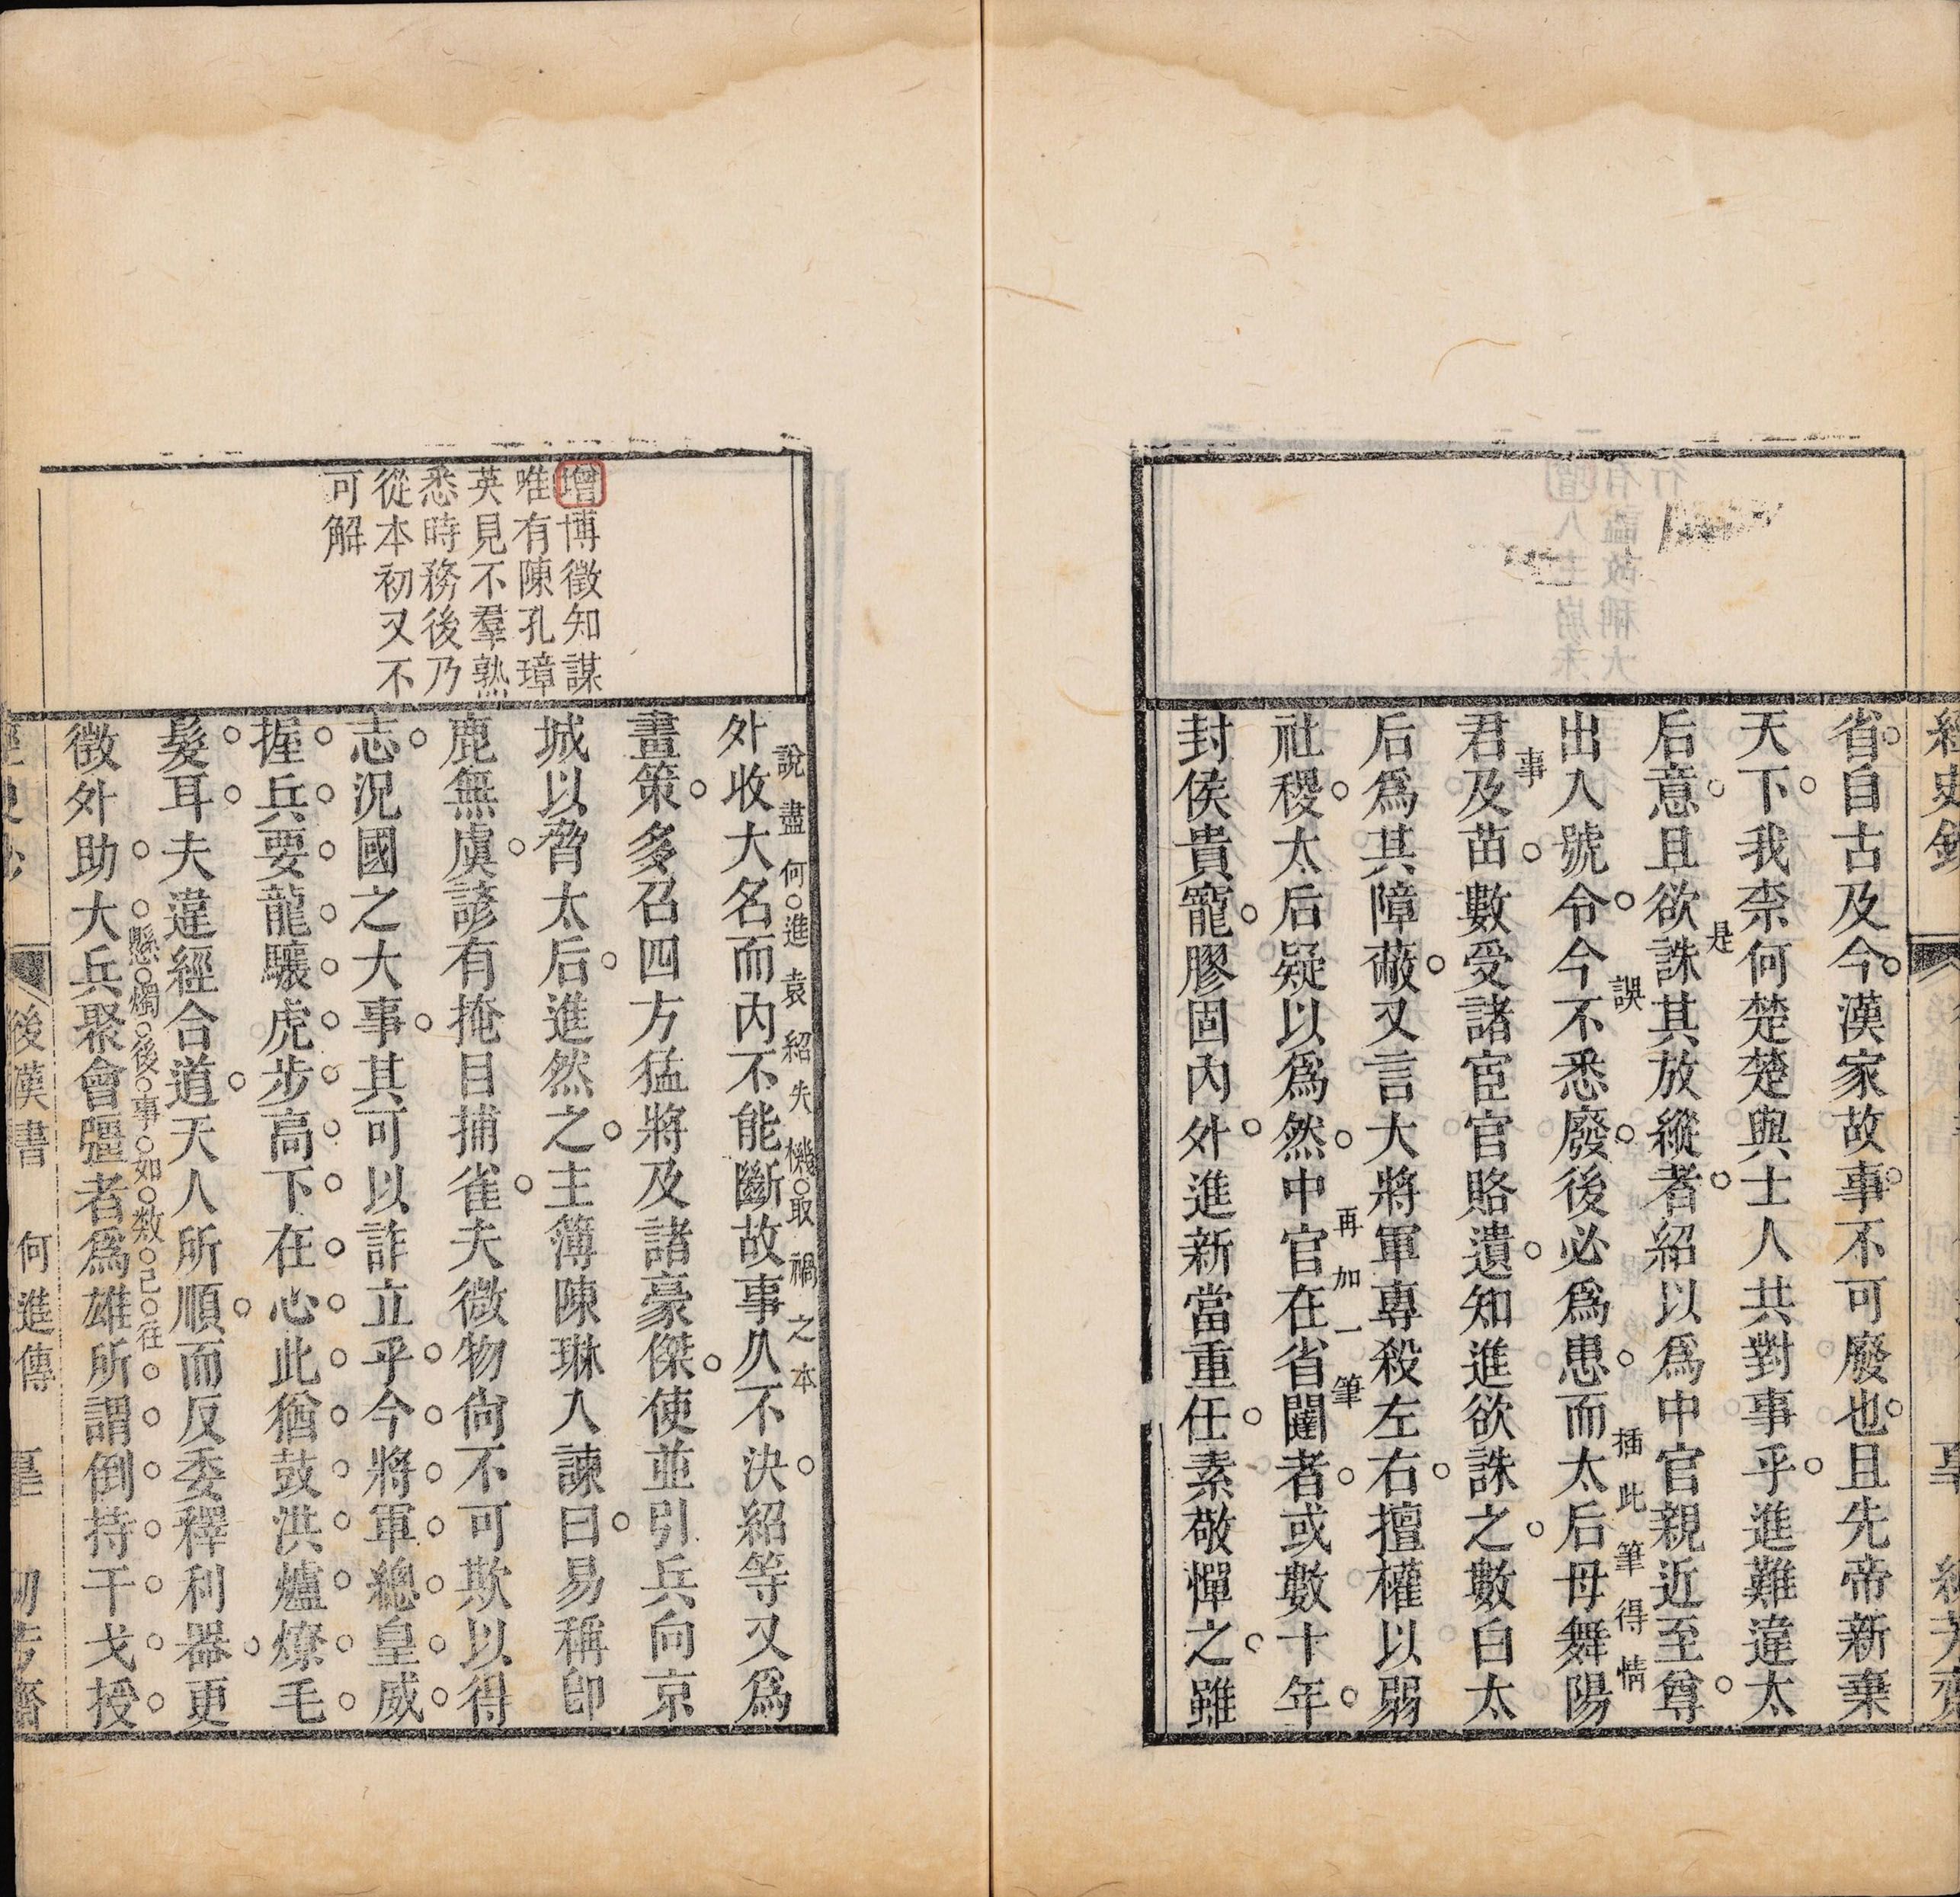 省自古及今漢家故事不可廢也且先帝新棄
天下我柰何楚楚與士人共對事乎進難違太
后意且欲誅其放縱者紹以爲中官親近至尊
是
出入號令今不悉廢後必爲患而太后母舞陽
誤
插此筆得情
君及苗數受諸宦官賂遺知進欲誅之數白太
事
后爲其障蔽又言大將軍專殺左右擅權以弱
社稷太后疑以爲然中官在省闥者或數十年
再加一筆
封侯貴寵膠固內外進新當重任素敬憚之雖
增博徵知謀
唯有陳孔璋
英見不羣熟
悉時務後乃
從本初又不
可解
外收大名而內不能斷故事乆不決紹等又爲
說盡何進袁紹失機取禍之本
畫策多召四方猛將及諸豪傑使並引兵向京
城以脅太后進然之主簿陳琳入諫曰易稱卽
鹿無虞諺有掩目捕雀夫微物尙不可欺以得
志況國之大事其可以詐立乎今將軍總皇威
握兵要龍驤虎步高下在心此猶鼓洪爐燎毛
髮耳夫違經合道天人所順而反委釋利器更
徵外助大兵聚會彊者爲雄所謂倒持干戈授
懸燭後事如数已往
後漢書 何進傳